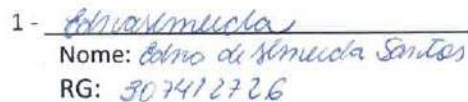 1 - Edno Almeida
Nome: Edno de Almeida Santos
RG: 307412726